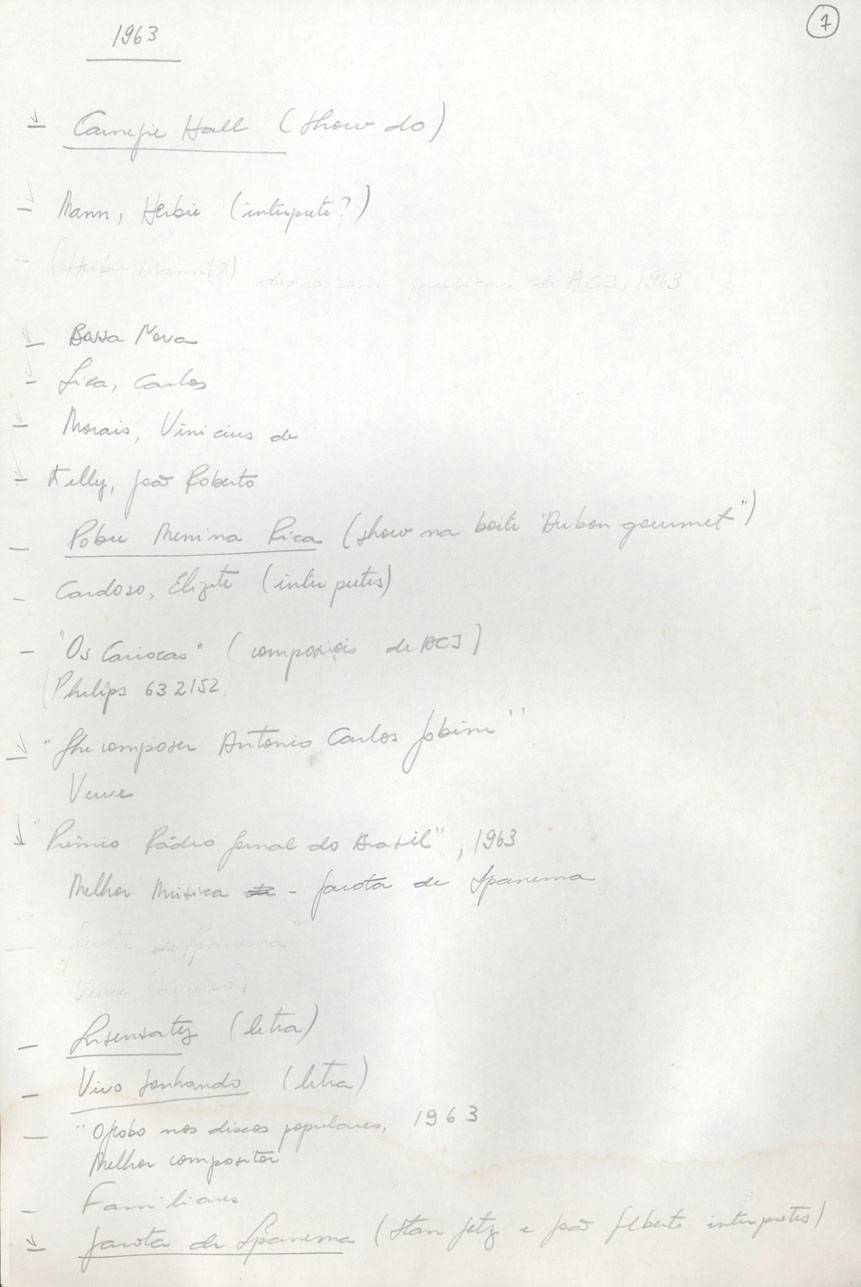 1
1963
- Carnegie Hall (show do)
- Mann, Herbie (interpete?)
- (Herbie Mann(?) disco com músicas de ACJ, 1963
- Bossa Nova
- Lira, Carlos
- Morais, Vinicius de
- Kelly, João Roberto
- Pobre Menina Rica (show na boite "Au bon gourmet")
- Cardoso, Elizete (interpetes)
- "Os Cariocas" (composições de ACJ)
(Philips 632152)
- "The composer Antonio Carlos Jobim"
Verve
- "Prêmio Rádio Jornal do Brasil", 1963
Melhor Música - Garota de Ipanema
- "Garota de Ipanema"
Verve
- Insensatez (letra)
- Vivo Sonhando (letra)
- "O globo nos discos populares, 1963
Melhor compositor
- Familiares
- Garota de Ipanema (Stan Getz e João Gilberto interpretes)